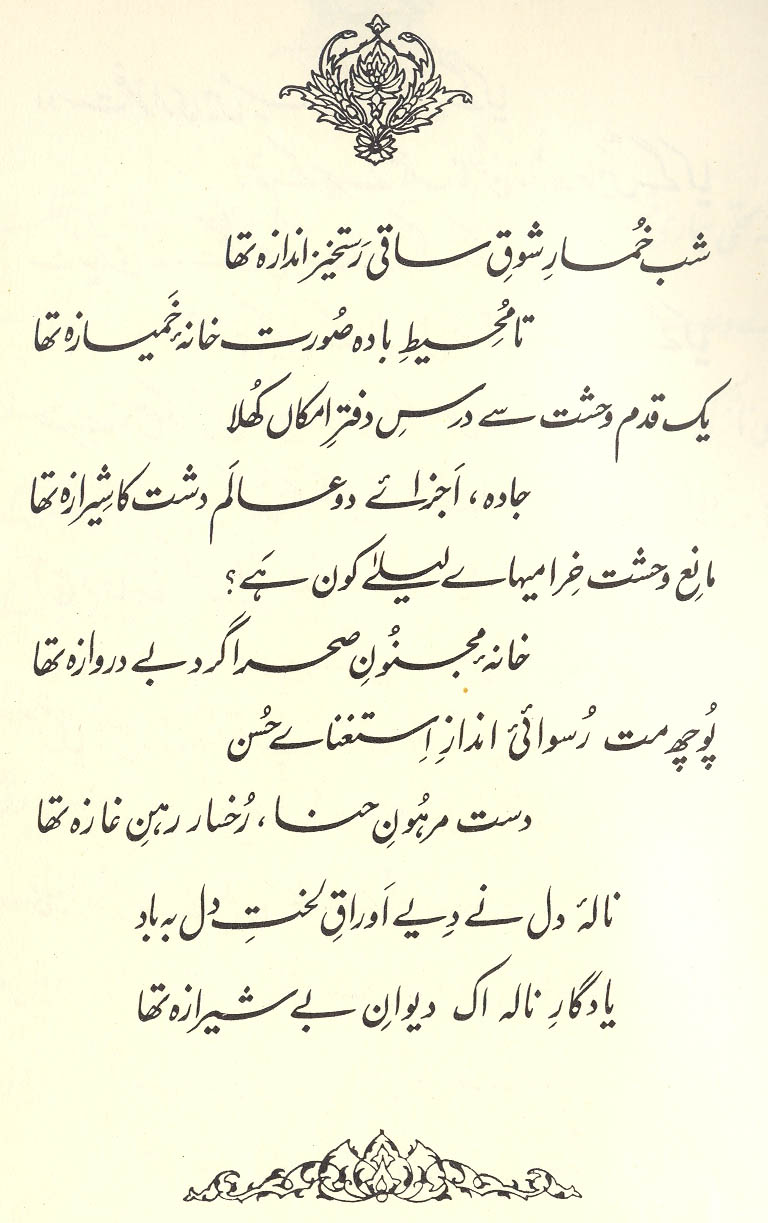 شب خُمارِ شوقِ ساقی رَستخیز اندازہ تھا
تا مُحِیطِ بادہ صُورت خانۂ خَمیازہ تھا
یک قدم وحشت سے درسِ دفترِ امکاں کھُلا
جادہ، اَجزائے دو عالَم دشت کا شِیرازہ تھا
مانِع وحشت خِرامیہاے لیلےٰ کون ہَے؟
خانۂ مجنُونِ صحرا گرد بے دروازہ تھا
پُوچھ مت رُسوائیِ اندازِ اِستغناے حُسن
دست مرہُونِ حنا، رُخسار رہنِ غازہ تھا
نالۂ دل نے دِیے اَوراقِ لختِ دل بہ باد
یادگارِ نالہ اک دیوانِ بے شیرازہ تھا